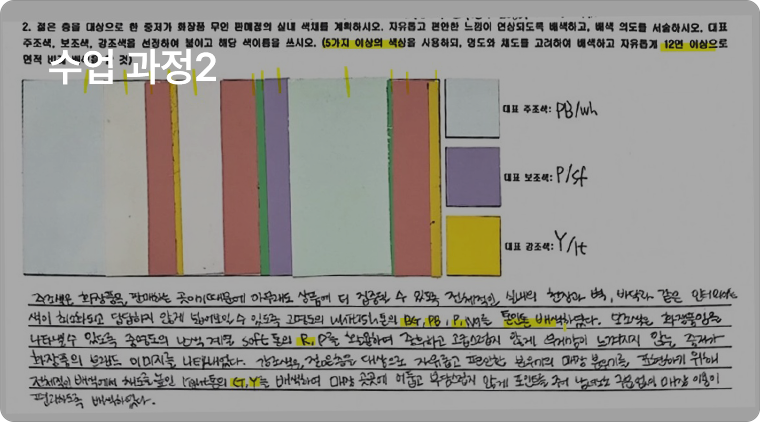 2. 젊은 층을 대상으로 한 중저가 화장품 무인 판매점의 실내 색채를 계획하시오. 자유롭고 편안한 느낌이 연상되도록 배색하고, 배색 의도를 서술하시오. 대표
주조색, 보조색, 강조색을 선정하여 붙이고 해당 색이름을 쓰시오. (5가지 이상의 색상을 사용하되, 명도와 채도를 고려하여 배색하고 자유롭게 12면 이상으로
면적 것)
수업 과정2
대표 주조색: PB/wh
대표 보조색: P/sf
대표 강조색: Y/lt
주조색은 화장품을 판매하는 곳이기 때문에 상품에 더 집중될 수 있도록 전체적인 실내의 천장과 벽, 바닥과 같은
색이 최소화되고 답답하지 않게 있도록 고명도의 톤의 BG, PB, P, 톤인톤 배색하였다. 보조색은
나타낼 수 있도록 중명도의 soft 톤의 R, P를 사용하여 않게 느껴지지 않는 중저가
화장품의 브랜드 이미지를 나타내었다. 강조색은, 젊은층을 대상으로 자유롭고 편안한 분위기의 매장 분위기를 표현하기 위해
전체적인 배색에 채도를 높인 light톤의 G, Y를 배색하여 매장 곳곳에 어둡고 부담스럽지 않게 포인트를 주어 매장 이용이
편리하도록 배색하였다.